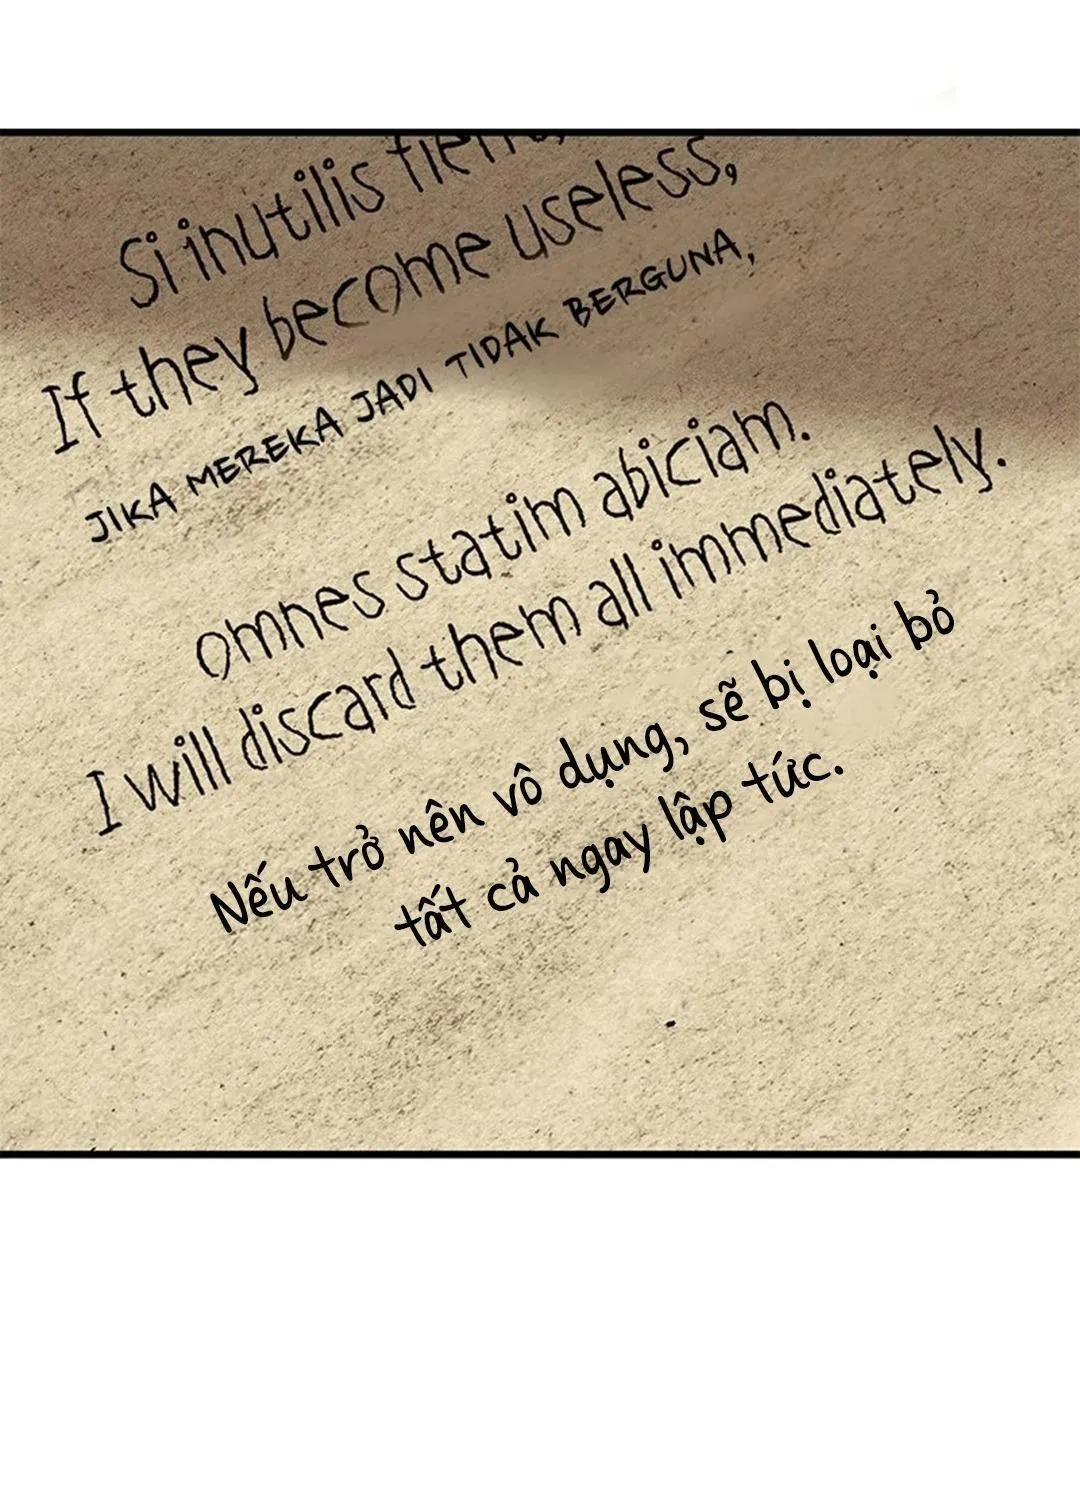 Si inutilis
If they become useless,
JIKA MEREKA JADI TIDAK BERGUNA,
omnes statim abiciam.
I will discard them all immediately.
Nếu trở nên vô dụng, sẽ bị loại bỏ
tất cả ngay lập tức.